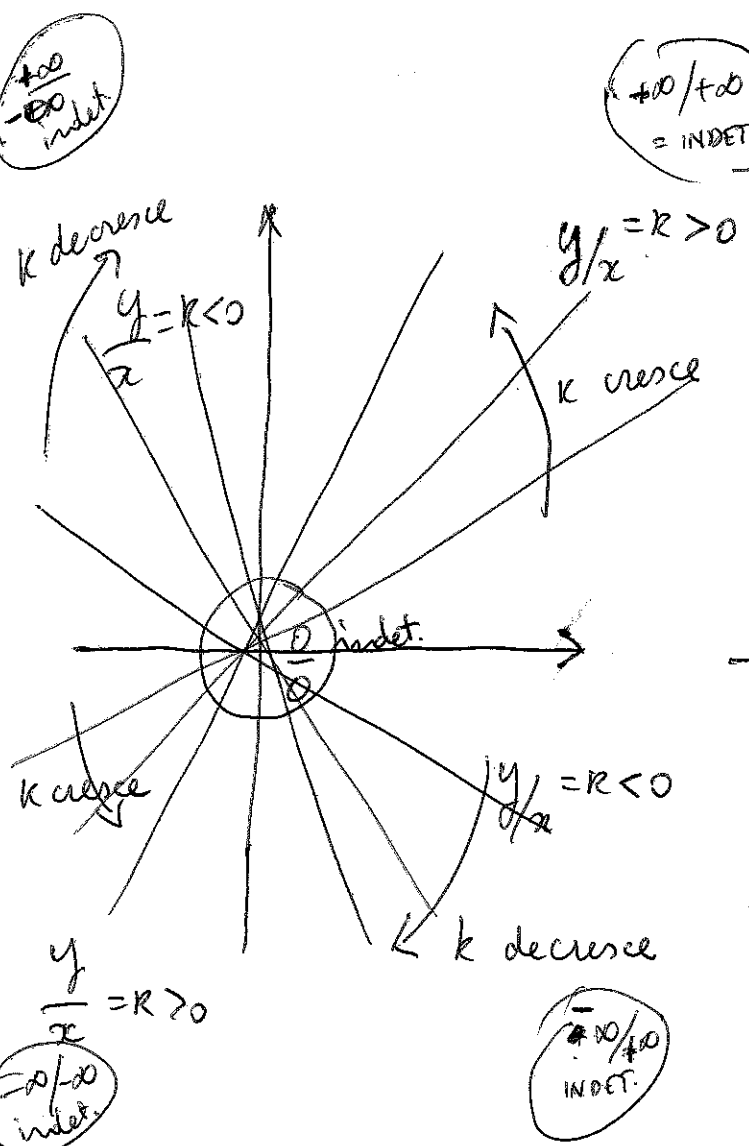 +∞
-∞
indet.
+∞/+∞
= INDET
k decresce
y/x = k > 0
y/x = k < 0
k cresce
0/0 indet.
k cresce
y/x = k < 0
k decresce
y/x = k > 0
-∞/-∞
indet.
-∞/+∞
INDET.